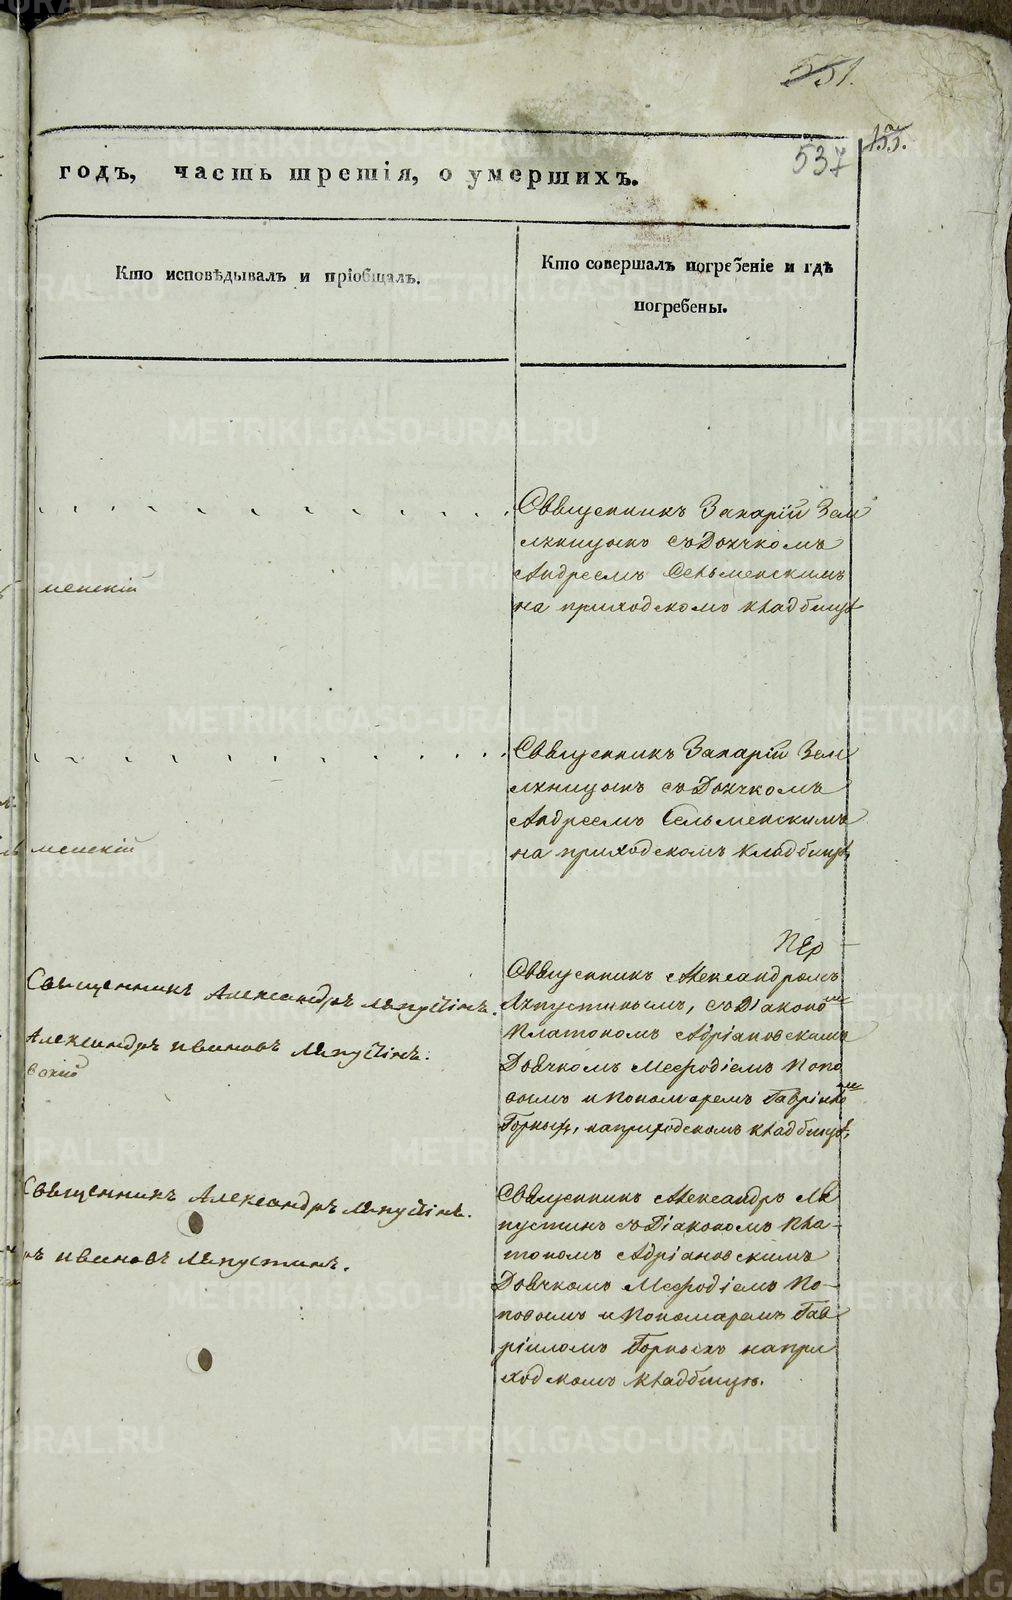 551.
537
155.
годъ, часть третія, о умершихъ.
Кто исповѣдывалъ и пріобщалъ.
Кто совершалъ погребеніе и гдѣ
погребены.
Священникъ Захарій Зем
ляницынъ съ Дьячкомъ
Андреемъ Сельменскимъ
менскій
на приходскомъ кладбищѣ
Священникъ Захарій Зем
ляницынъ съ Дьячкомъ
Андреемъ Сельменскимъ
менскій
на приходскомъ кладбищѣ
Пер
Священникъ Александръ Лапустинъ.
Александръ Ивановъ Лапустинъ.
вскій
Священникъ Александромъ
Лапустинымъ, съ Діакономъ
Платономъ Адріановскимъ
Дьячкомъ Меѳодіемъ Попо
вымъ и Пономаремъ Гавріиломъ
Горныхъ, на приходскомъ кладбищѣ,
Священникъ Александръ Лапустинъ.
ъ Ивановъ Лапустинъ.
Священникъ Александръ Ла
пустинъ съ Діакономъ Пла-
тономъ Адріановскимъ
Дьячкомъ Меѳодіемъ По-
повымъ и Пономаремъ Гав
ріиломъ Горныхъ на при
ходскомъ кладбищѣ.
METRIKI.GASO-URAL.RU